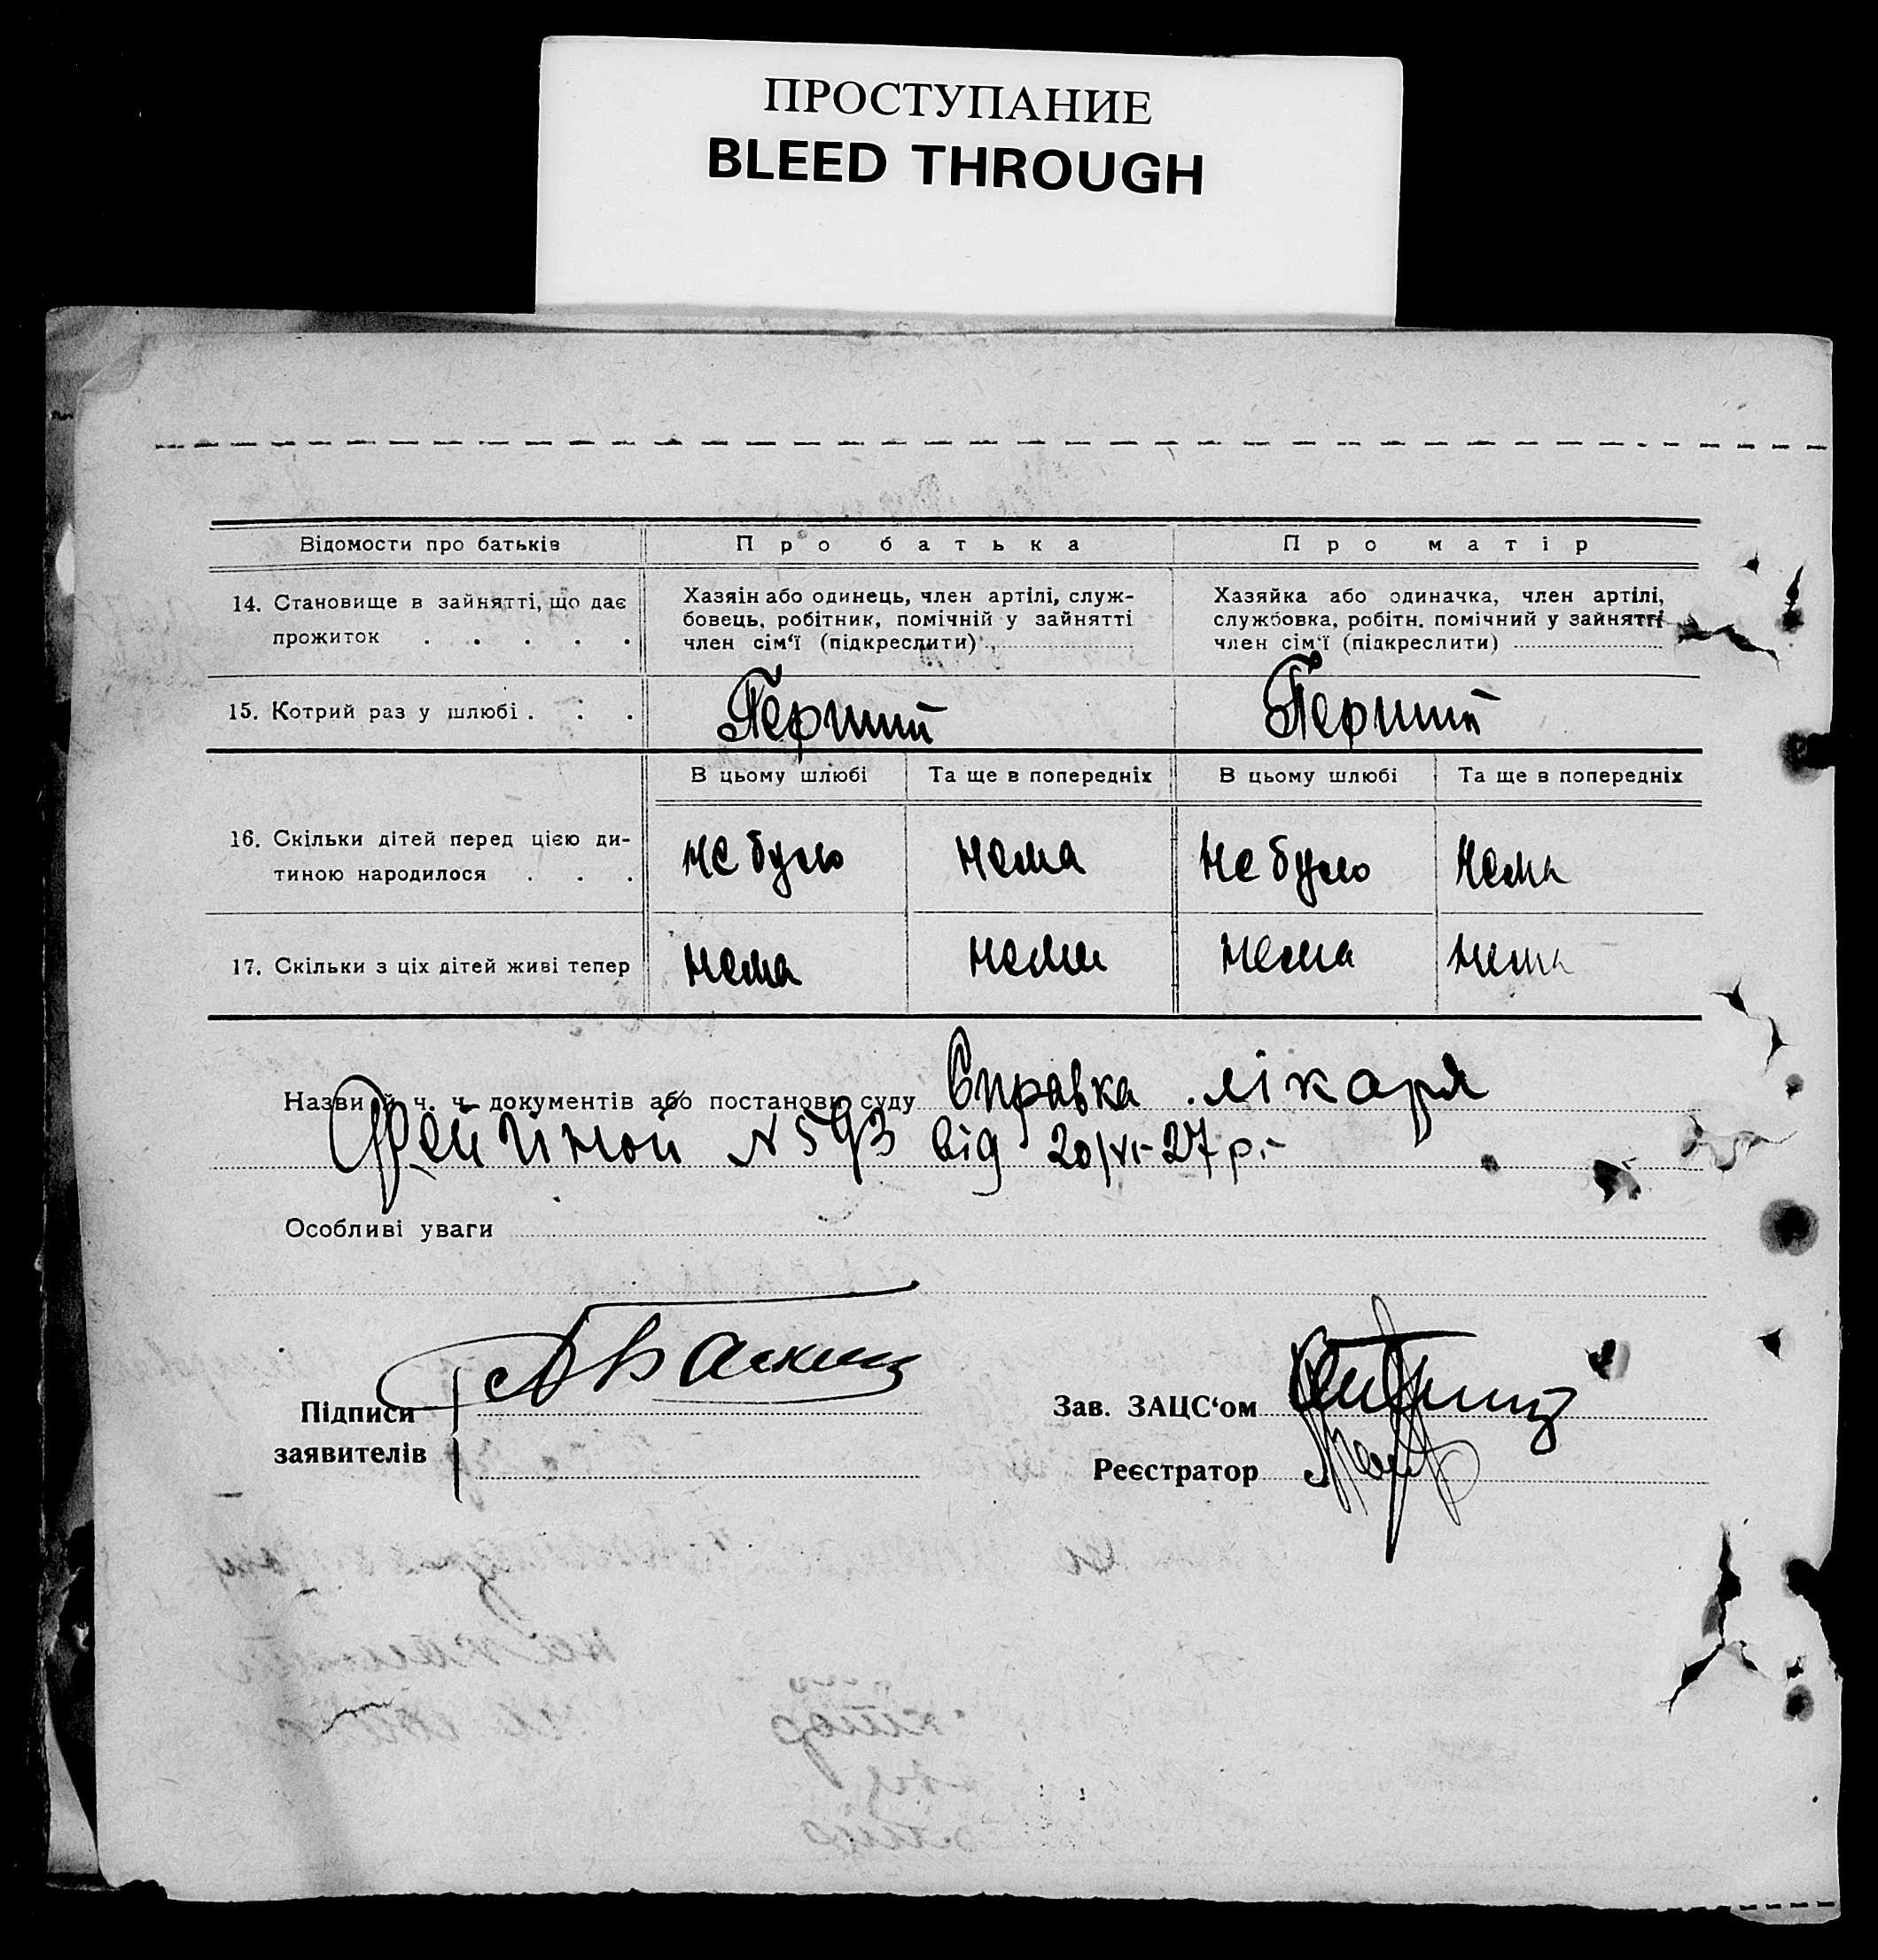 ПРОСТУПАНИЕ
BLEED THROUGH
Відомости про батьків
Про батька
Про матір
14. Становище в зайнятті, що дає
прожиток . . . . .
Хазяін або одинець, член артілі, служ-
бовець, робітник, помічній у зайнятті
член сім'ї (підкреслити)
Хазяйка або одиначка, член артілі,
службовка, робітн. помічний у зайнятті
член сім'ї (підкреслити)
15. Котрий раз у шлюбі . . .
Перший
Перший
В цьому шлюбі
Та ще в попередніх
В цьому шлюбі
Та ще в попередніх
16. Скільки дітей перед цією ди-
тиною народилося . . .
не було
нема
не було
нема
17. Скільки з ціх дітей живі тепер
нема
нема
нема
нема
Назви й ч. ч. документів або постанови суду Справка лікаря
Фейгиной N 593 від 20/VI-27 р.-
Особливі уваги
Підписи
заявителів
Зав. ЗАЦС'ом
Реєстратор